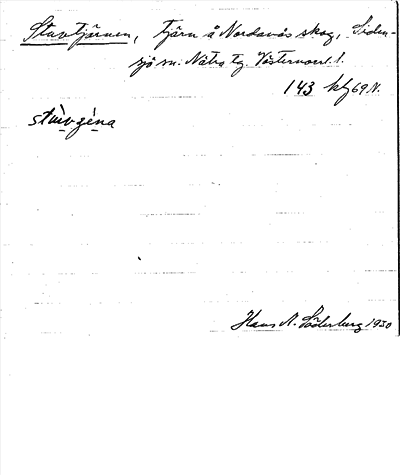 Stavtjärnen, tjärn å Nordanås skog, Siden-
sjö sn. Nätra tg. Västernorrl. l.
143 kbl 69 N.
Hans A. Söderberg 1930